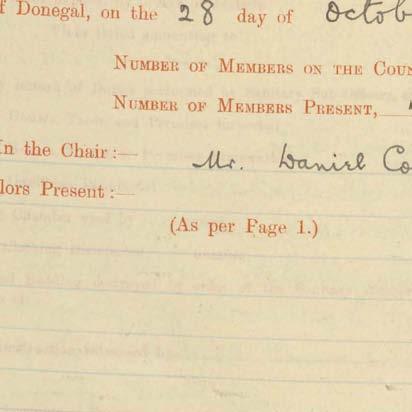 f Donegal, on the 28 day of Octob
NUMBER OF MEMBERS ON THE COUN
NUMBER OF MEMBERS PRESENT,
In the Chair:— Mr. Daniel Co
lors Present:—
(As per Page 1.)